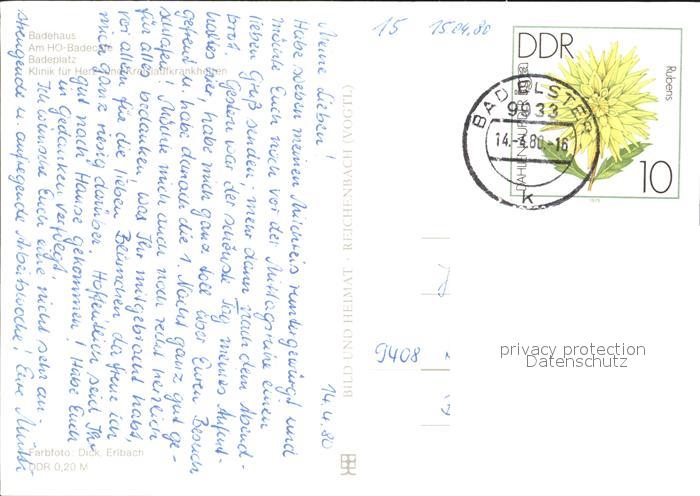 Badehaus
Am HO-Badecafé
Badeplatz
Klinik für Herz- und Kreislaufkrankheiten
14.4.80
Meine Lieben!
Habe soeben meinen Milchreis runtergewürgt und
möchte Euch noch vor der Mittagsruhe einen
lieben Gruß senden, mehr dann nach dem Abend-
brot. Gestern war der schönste Tag meines Aufent-
haltes hier, habe mich ganz doll über Euren Besuch
gefreut u. habe danach die 1. Nacht ganz gut ge-
schlafen. Möchte mich auch noch recht herzlich
für alles bedanken, was Ihr mitgebracht habt,
vor allem für die lieben Blümchen, da freue ich
mich ganz riesig darüber. Hoffentlich seid Ihr
gut nach Hause gekommen! Habe Euch
in Gedanken verfolgt.
Ich wünsche Euch eine nicht sehr an
strengende u. aufregende Arbeitswoche! Eure Mutti
Farbfoto: Dick, Erlbach
DDR 0,20 M
BILD UND HEIMAT · REICHENBACH (VOGTL)
15 15.04.80
DDR
Rubens
DAHLIENAUFBLÜHER
10
1979
BAD ELSTER
9933
14.-4.80.-16
k
9408
privacy protection
Datenschutz